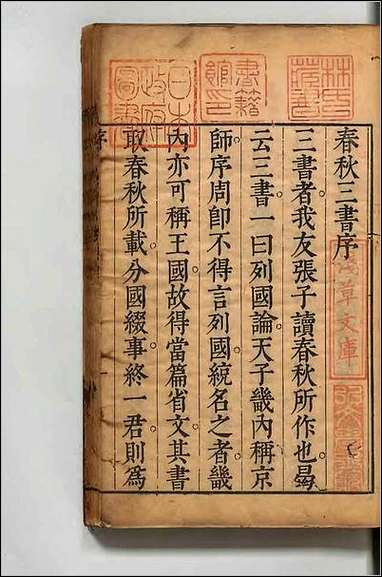 春秋三書序
三書者我友張子讀春秋所作也曷
云三書一曰列國論天子畿內稱京
師序周卽不得言列國統名之者畿
內亦可稱王國故得當篇省文其書
取春秋所載分國綴事終一君則爲
淺草文庫
書籍館印
日本政府圖書